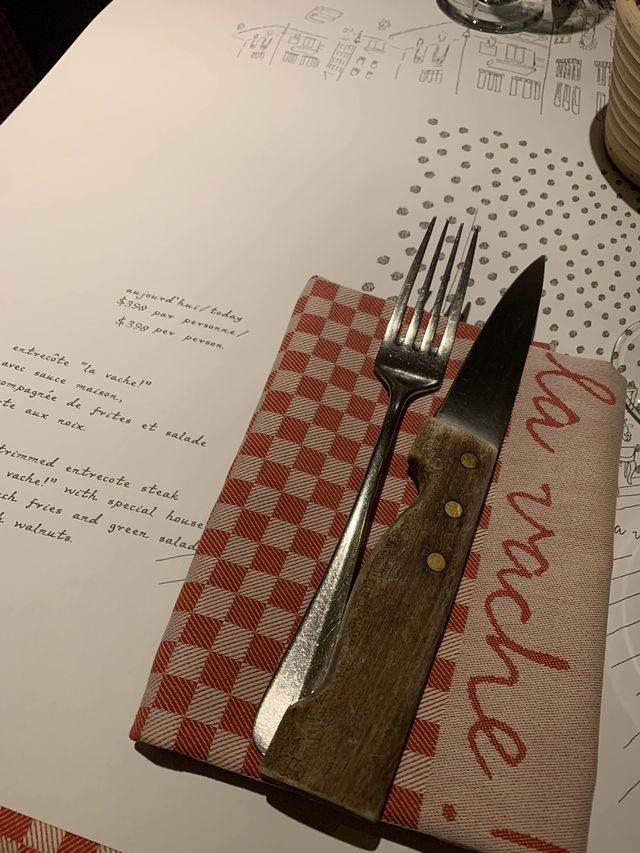 aujourd'hui/today
$398 par personne/
$398 per person
entrecôte "la vache!"
avec sauce maison,
de frites et salade
aux noix.
trimmed entrecote steak
vache!" with special house
fries and green salad
walnuts.
la vache!